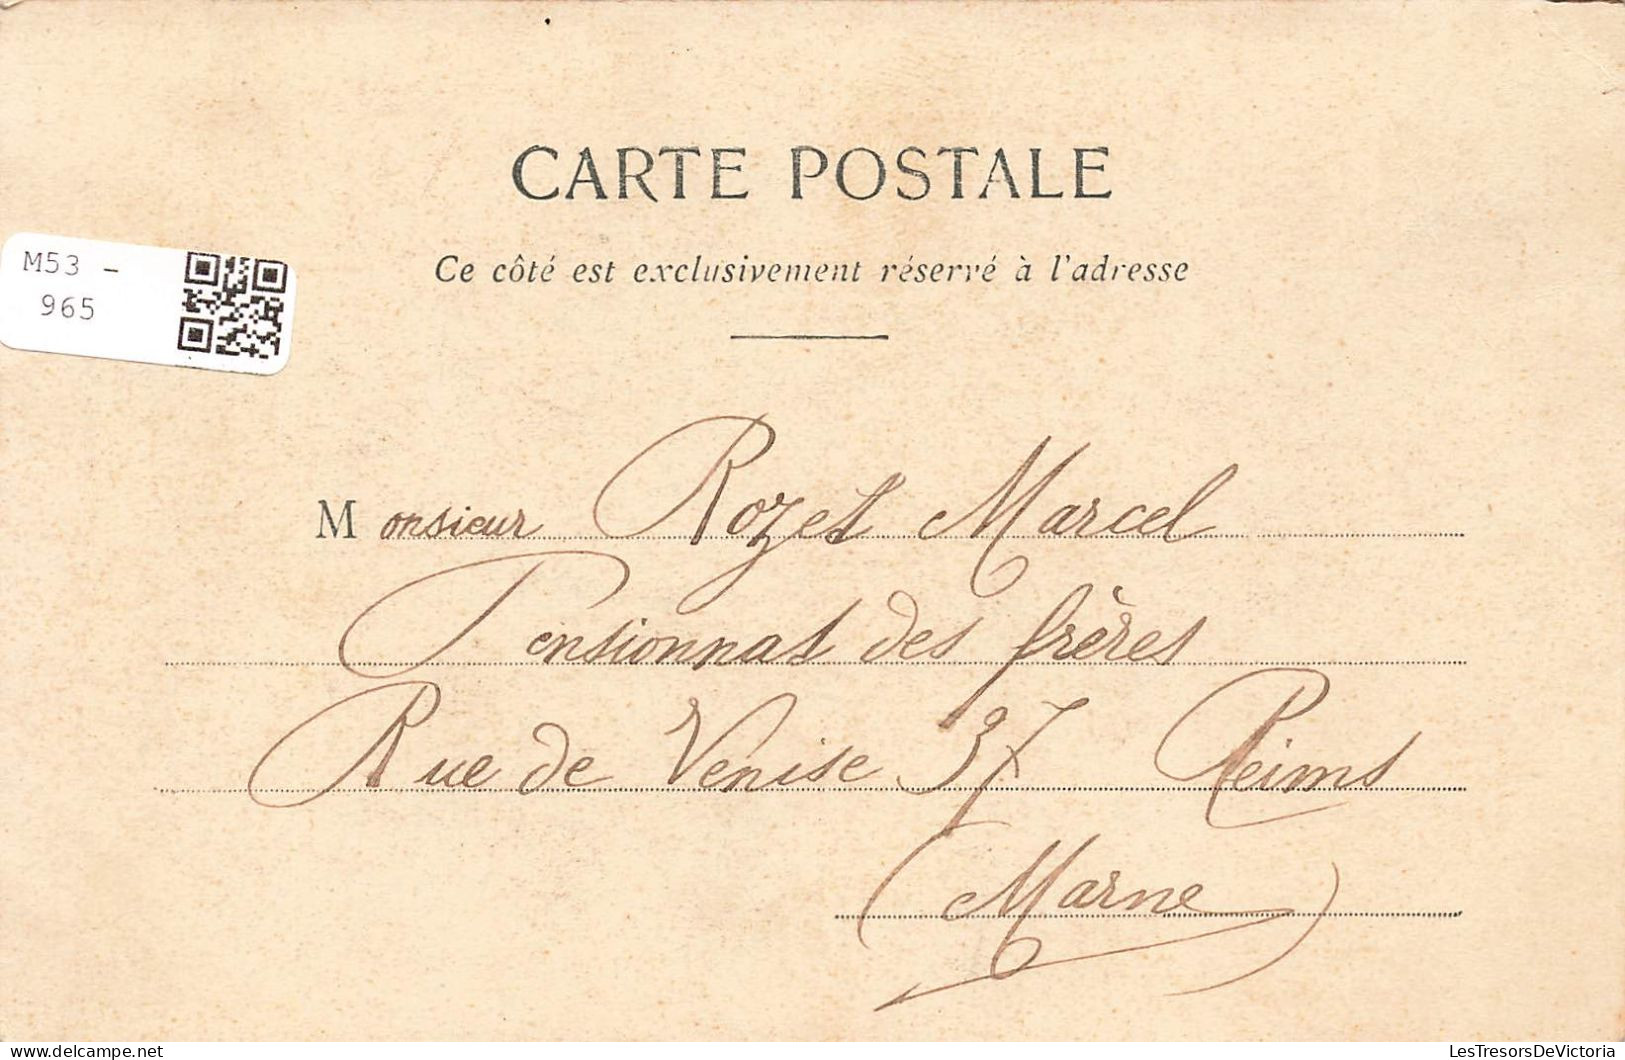 CARTE POSTALE
Ce côté est exclusivement réservé à l'adresse
M53 -
965
Monsieur Rozet Marcel
Pensionnat des frères
Rue de Venise 37 Reims
(Marne)
LesTresorsDeVictoria